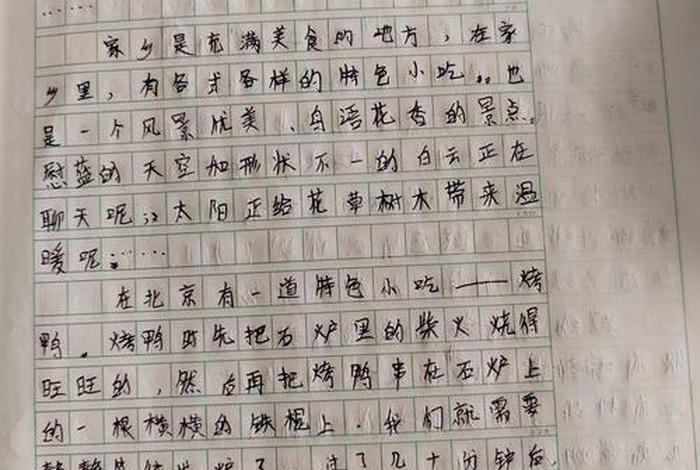 ……
家乡是充满美食的地方，在家
乡里，有各式各样的特色小吃。。也
是一个风景优美、鸟语花香的景点。
慰蓝的天空和形状不一的白云正在
聊天呢；太阳正给花草树木带来温
暖呢；……
在北京有一道特色小吃——烤
鸭。烤鸭时先把石炉里的柴火烧得
旺旺的，然后再把烤鸭串在石炉上
的一根横横的铁棍上。我们就需要
静静等候
过了几十分钟后